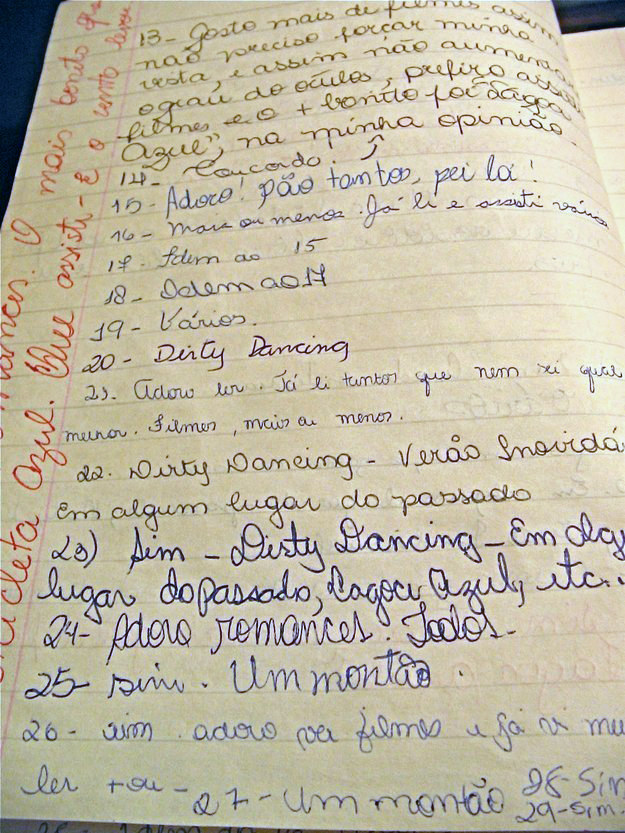 13- Gosto mais de filmes assim
não preciso forçar minha
vista, e assim não aumenta
o grau do óculos, prefiro
filmes e o + bonito foi "Lagoa
Azul", na minha opinião.
14- Concordo.
15- Adoro! são tantos, sei lá!
16- Mais ou menos. Já li e assisti vários
17- Idem ao 15
18- Idem ao 17
19- Vários.
20- Dirty Dancing
21. Adoro ler. Já li tantos que nem sei qual
melhor. Filmes, mais ou menos.
22. Dirty Dancing - Verão Inovidá
Em algum lugar do passado
23) Sim - Dirty Dancing - Em alg
lugar do passado, Lagoa Azul, etc.
24- Adoro romances. Todos.
25- sim. Um montão.
26- sim adoro ver filmes e já vi mui
ler + ou -
27- Um montão 28- Sim
29- Sim.
mances. O mais bonito
cicleta Azul. Que assisti - E o vento levou